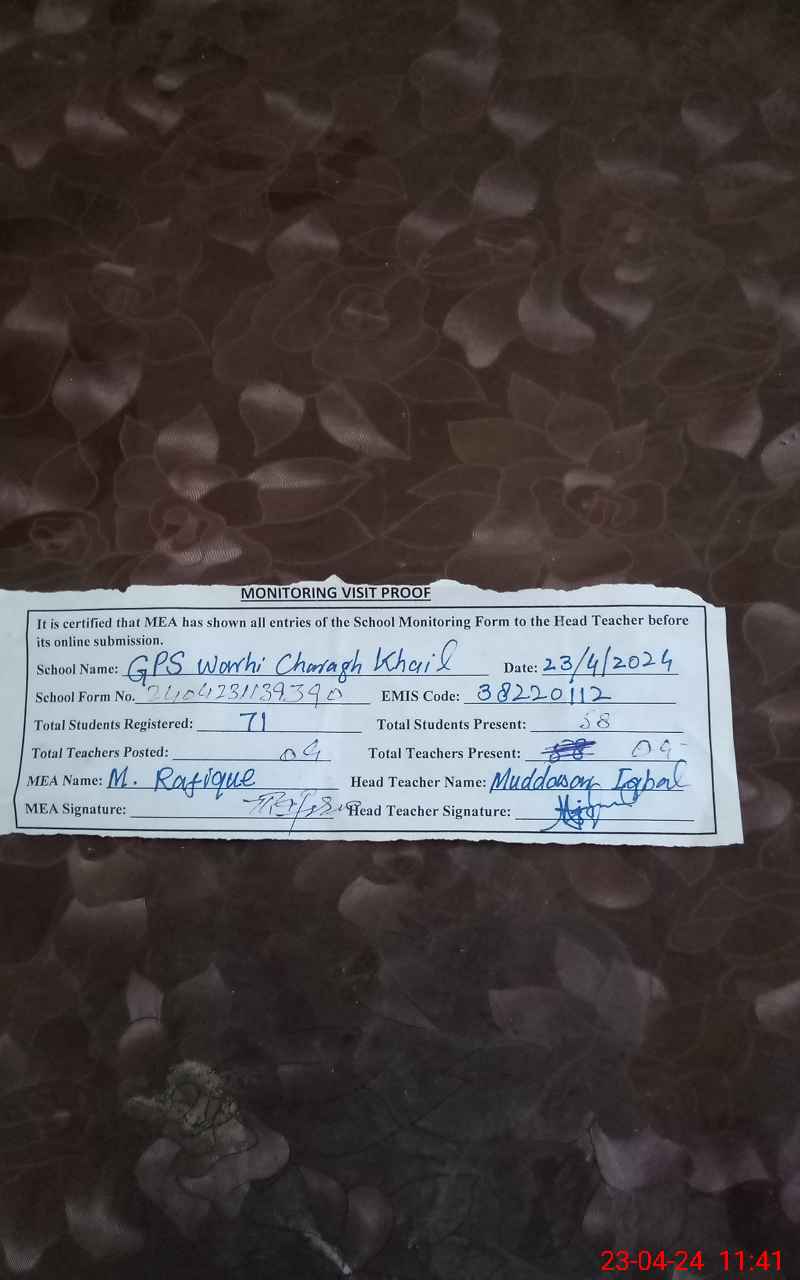 MONITORING VISIT PROOF
It is certified that MEA has shown all entries of the School Monitoring Form to the Head Teacher before
its online submission.
School Name: GPS Warhi Charagh Khail Date: 23/4/2024
School Form No. EMIS Code: 38220112
Total Students Registered: 71 Total Students Present: 58
Total Teachers Posted: 04 Total Teachers Present: 04
MEA Name: M. Rafique Head Teacher Name: Muddassar Iqbal
MEA Signature: Head Teacher Signature:
23-04-24 11:41